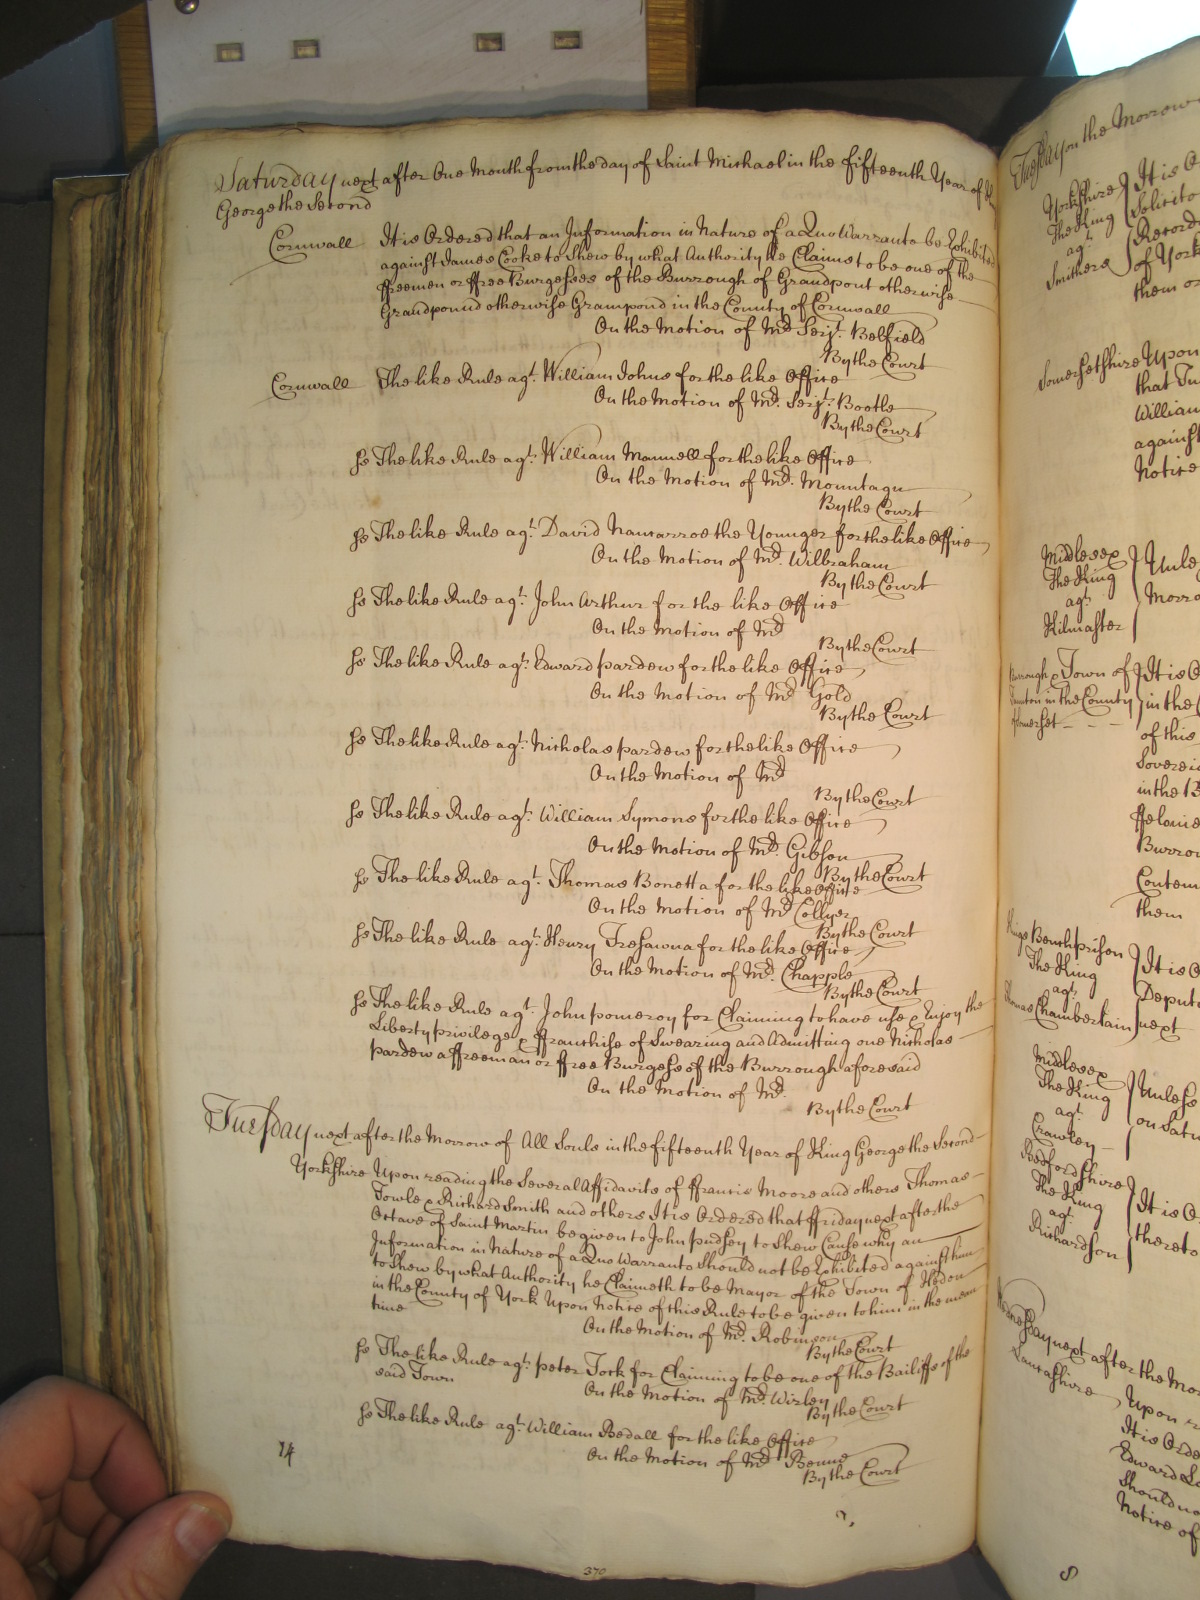 Saturday next after One Month from the day of Saint Michael in the fifteenth Year of
George the Second
Cornwall It is Ordered that an Information in Nature of a Quo Warranto be Exhibited
against James Cooke to Shew by what Authority he Claims to be one of the
ffreemen or ffree Burgesses of the Burrough of Grandpont otherwise
Grandpound otherwise Grampond in the County of Cornwall
On the Motion of Mr. Serjt. Belfield
By the Court
Cornwall The like Rule agt. William Johns for the like Office
On the Motion of Mr. Serjt. Bootle
By the Court
ss The like Rule agt. William Mannell for the like Office
On the Motion of Mr. Mountagu
By the Court
ss The like Rule agt. David Navarroe the Younger for the like Office
On the Motion of Mr. Wilbraham
By the Court
ss The like Rule agt. John Arthur for the like Office
On the Motion of Mr
By the Court
ss The like Rule agt. Edward pardew for the like Office
On the Motion of Mr Gold
By the Court
ss The like Rule agt. Nicholas pardew for the like Office
On the Motion of Mr
By the Court
ss The like Rule agt. William Symons for the like Office
On the Motion of Mr. Gibson
By the Court
ss The like Rule agt. Thomas Bonetta for the like Office
On the Motion of Mr Collyer
By the Court
ss The like Rule agt. Henry Tresawna for the like Office
On the Motion of Mr. Chapple
By the Court
ss The like Rule agt. John pomeroy for Claiming to have use & Enjoy the
Liberty privilege & ffranchise of Swearing and Admitting one Nicholas
pardew a ffreeman or ffree Burgess of the Burrough aforesaid
On the Motion of Mr.
By the Court
Tuesday next after the Morrow of All Souls in the fifteenth Year of King George the Second
Yorkshire Upon reading the Several Affidavits of ffrancis Moore and others Thomas
Towle & Richard Smith and others It is Ordered that ffriday next after the
Octave of Saint Martin be given to John pudsey to Shew Cause why an
Information in Nature of a Quo Warranto Should not be Exhibited against him
to Shew by what Authority he Claimeth to be Mayor of the Town of Hedon
in the County of York Upon Notice of this Rule to be given to him in the mean
time
On the Motion of Mr. Robinson
By the Court
ss The like Rule agt. peter Jork for Claiming to be one of the Bailiffs of the
said Town
On the Motion of Mr. Wirley
By the Court
ss The like Rule agt. William Bedall for the like Office
On the Motion of Mr
By the Court
14
370
Tuesday on the Morrow
Yorkshire It is O
The King Solicito
agt. Record
Smithers of York
them or
Somersetshire Upon
that Ju
William
against
Notice
Middlesex
The King Unle
agt. Morro
Kilmaster
Burrough & Town of It is O
Taunton in the County in the
Somerset of this
Soverei
in the B
ffelonie
Burrou
Contem
them
Kings Bench prison
The King It is O
agt. Deput
Thomas Chamberlain next
Middlesex
The King Unless
agt. on Satu
Crawley
Bedfordshire
The King It is O
agt. thereto
Richardson
Wednesday next after the Mor
Lancashire Upon
It is Orde
Edward
Should no
Notice of
8